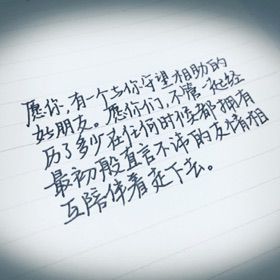 愿你,有一个与你守望相助的
好朋友。愿你们,不管一起经
历了多少在任何时候都拥有
最初般直言不讳的友情相
互陪伴着走下去。